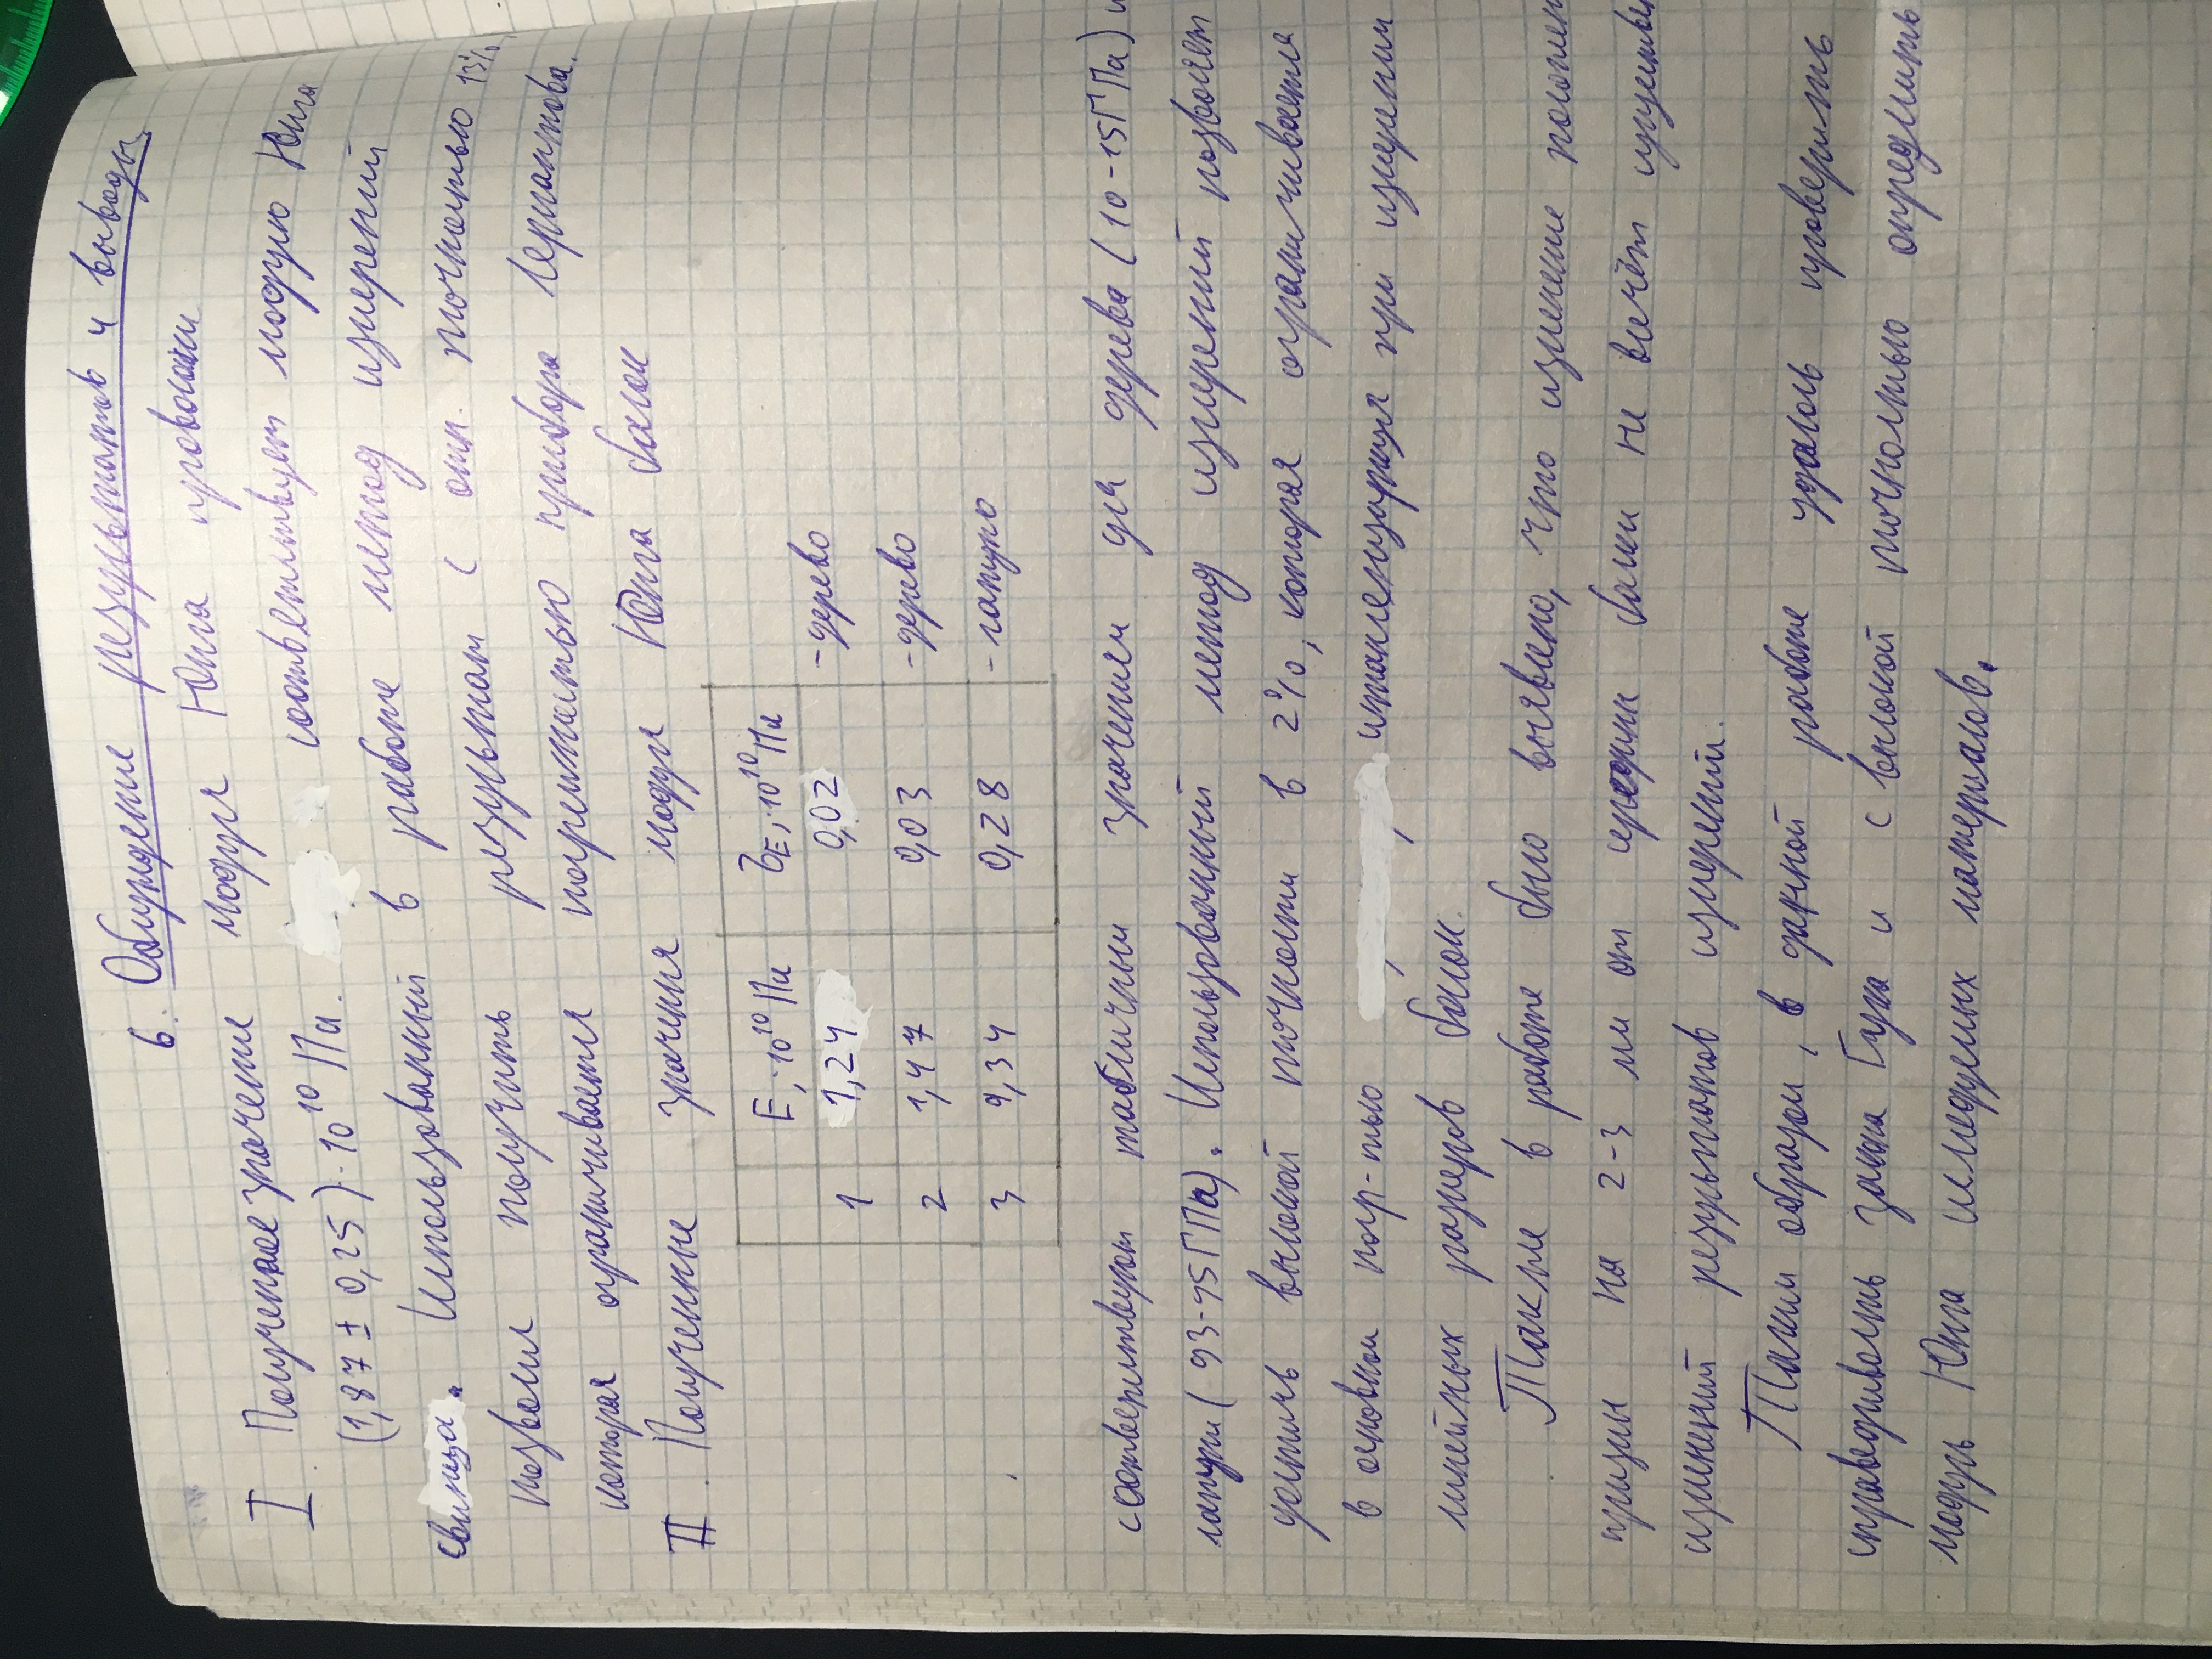 6. Обсуждение результатов и выводы
I Полученное значение модуля Юнга проволоки
(1,87 ± 0,25)·10^10 Па. соответствует модулю Юнга
свинца. Использованный в работе метод измерений
позволил получить результат с отн. точностью 13%,
которая ограничивается погрешностью прибора Лермантова.
II. Полученные значения модуля Юнга балок
E, ·10^10 Па σE, ·10^10 Па
1 1,24 0,02 -дерево
2 1,47 0,03 -дерево
3 9,34 0,28 -латунь
соответствуют табличным значениям для дерева (10-15ГПа) и
латуни (93-95ГПа). Использованный метод измерений позволяет
достичь высокой точности в 2%, которая ограничивается
в основном погр-тью , , штангенциркуля при измерении
линейных размеров балок.
Также в работе было выявлено, что изменение положен
призмы на 2-3 мм от середины балки не влечёт существен
изменений результатов измерений.
Таким образом, в данной работе удалось проверить
справедливость закона Гука и с высокой точностью определить
модуль Юнга исследуемых материалов.